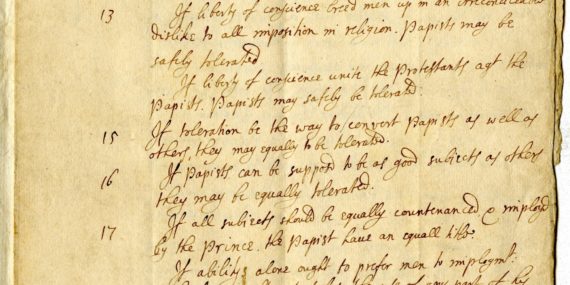 13 If liberty of conscience breed men up in an irreconcileable
dislike to all imposition in religion. Papists may be
safely tolerated
If liberty of conscience unite the Protestants agt the
Papists. Papists may safely be tolerated.
15 If toleration be the way to convert Papists as well as
others, they may equally to be tolerated.
16 If Papists can be supposd to be as good subjects as others
they may be equally tolerated.
17 If all subjects should be equally countenanced & imployd
by the Prince. the Papist have an equall title.
If abilitys alone ought to prefer men to imploymt:
of any part of his